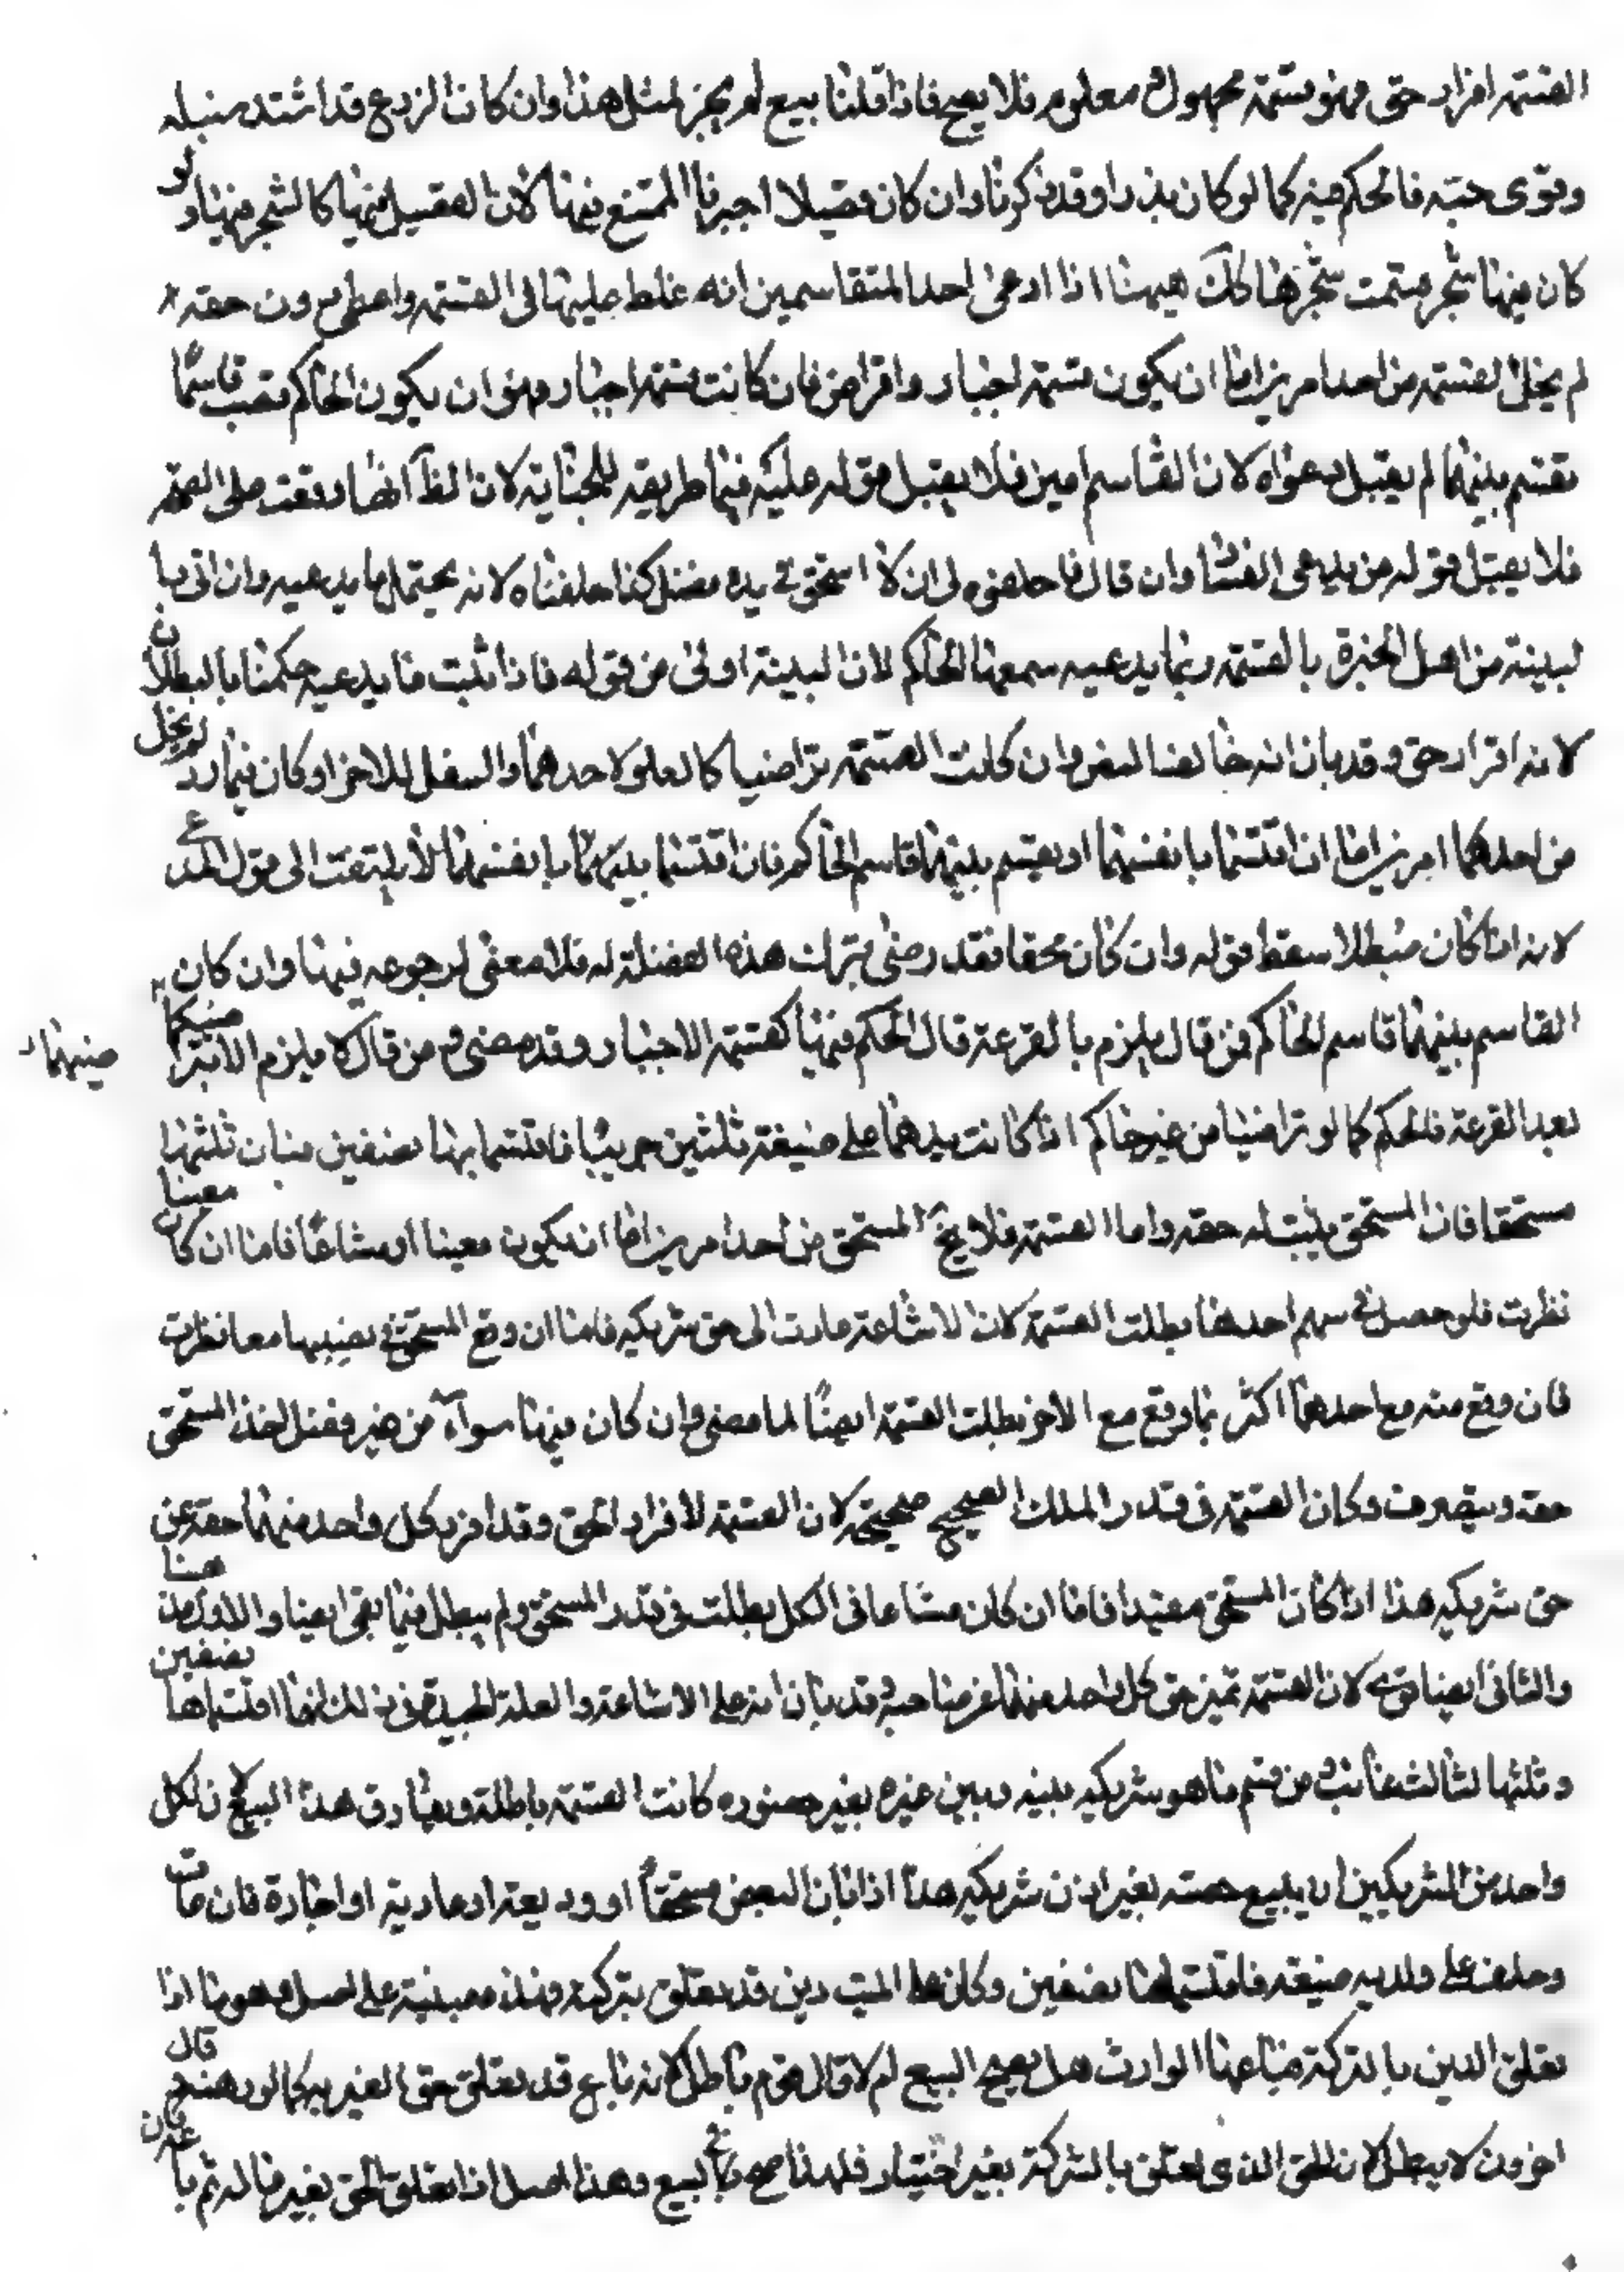 القسمة افراز حق وهو قسمة مجهول معلوم فلا يصح فاذا قلنا بيع لم يجز لمثل هذا وان كان الزرع قد اشتد سنبله
وقوى حبه فالحكم فيه كما لو كان بذرا وقد ذكرنا وان كان فصيلا اجبرنا الممتنع فيها لان الفصيل فيها كالشجر فيها ولو
كان فيها شجر قسمت شجرها كك هيهنا اذا ادعى احد المتقاسمين انه غلط عليها في القسمة واعطى دون حقه
لم يخل القسمة من احد امرين اما ان يكون قسمة اجبار و اقراض فان كانت قسمة اجبار وهو ان يكون الحاكم نصب قاسما
تقسم بينهما لم يقبل دعواه لان القاسم امين فلا يقبل قوله عليه فيما طريقه للجناية لان الظ انها وقعت على الصحة
فلا يقبل قوله من يدعى الفسا وان قال فاحلفوه لى ان لا استحق في يده فضل كذا حلفناه لانه يحتمل ما يدعيه وان اتى با
لبينة من اهل الخبرة بالقسمة ربما يدعيه سمعها الحاكم لان البينة اولى من قوله فاذا ثبت ما يدعيه حكمنا بالبطلان
لانه اقرار حق وقد بان انه خالفنا لبعض وان كانت القسمة تراضيا كالعلو لاحدهما والسفل للاخر او كان فيها رد لم يخل
من احدهما امرين اما ان اقتسما بانفسهما او يقسم بينهما قاسم الحاكم فان اقتسما بينهما بانفسهما لا يلتفت الى قول المدعى
لانه ان كان مبطلا سقط قوله وان كان محقا فقد رضى بترك هذه الفضلة له فلا معنى لرجوعه فيها وان كان
القاسم بينهما قاسم الحاكم فمن قال يلزم بالقرعة قال الحكم فيها كقسمة الاجبار وقد مضى ومن قال لا يلزم الا بتراضيهما
بعد القرعة فالحكم كما لو تراضيا من غير حاكم اذا كانت يدهما على ضيغة ثلثين جريبا فاقتسما بها نصفين فبان ثلثها
مستحقا فان المستحق يثبت له حقه واما القسمة فلا يخ المستحق من احد امرين اما ان يكون معينا او مشاعا فاما ان كان معينا
نظرت فلو حصل في سهم احدهما بطلت القسمة لان الاشاعة عادت الى حق شريكه فاما ان وقع المستحق في نصيبهما معا نظرت
فان وقع منه مع احدهما اكثر مما وقع مع الاخر بطلت القسمة ايضا لما مضى وان كان فيها سوآء من غير فضل اخذ المستحق
حقه ويتصرف وكان القسمة في قدر الملك الصحيح صحيحة لان القسمة لافراد الحق وقد افرد كل واحد منهما حقه عن
حق شريكه هذا اذا كان المستحق مقيدا فاما ان كان مشاعا في الكل بطلت في قدر المستحق ولم يبطل فيما بقى ايضا والاول مذهبنا
والثانى ايضا قوى لان القسمة تميز حق كل واحد منهما عن صاحبه وقد بان انه على الاشاعة والعلة الجيدة في ذلك انهما اقتسماها نصفين
وثلثها لثالث غائب ومن قسم ما هو شريكه بينه وبين غيره بغير حضوره كانت القسمة باطلة ويفارق هذا البيع لان لكل
واحد من الشريكين ان يبيع حصته بغير اذن شريكه هذا اذا بان البعض مستحقا او وديعة او عارية او اجارة فان مات
وخلف على ولديه ضيعة فاقتسماها نصفين وكان على الميت دين قد تعلق بتركته وهذه مبنية على اصل وهو ما اذا
تعلق الدين بالتركة فباعها الوارث هل يصح البيع ام لا قال قوم باطل لانه باع قد تعلق حق الغير به كما لو رهنه وقال
اخرون لا يبطل لان الحق الذى تعلق بالشركة بغير اختيار فلهذا صح البيع وهذا اصل اذا تعلق الحق بغير ماله ثم باعه فان